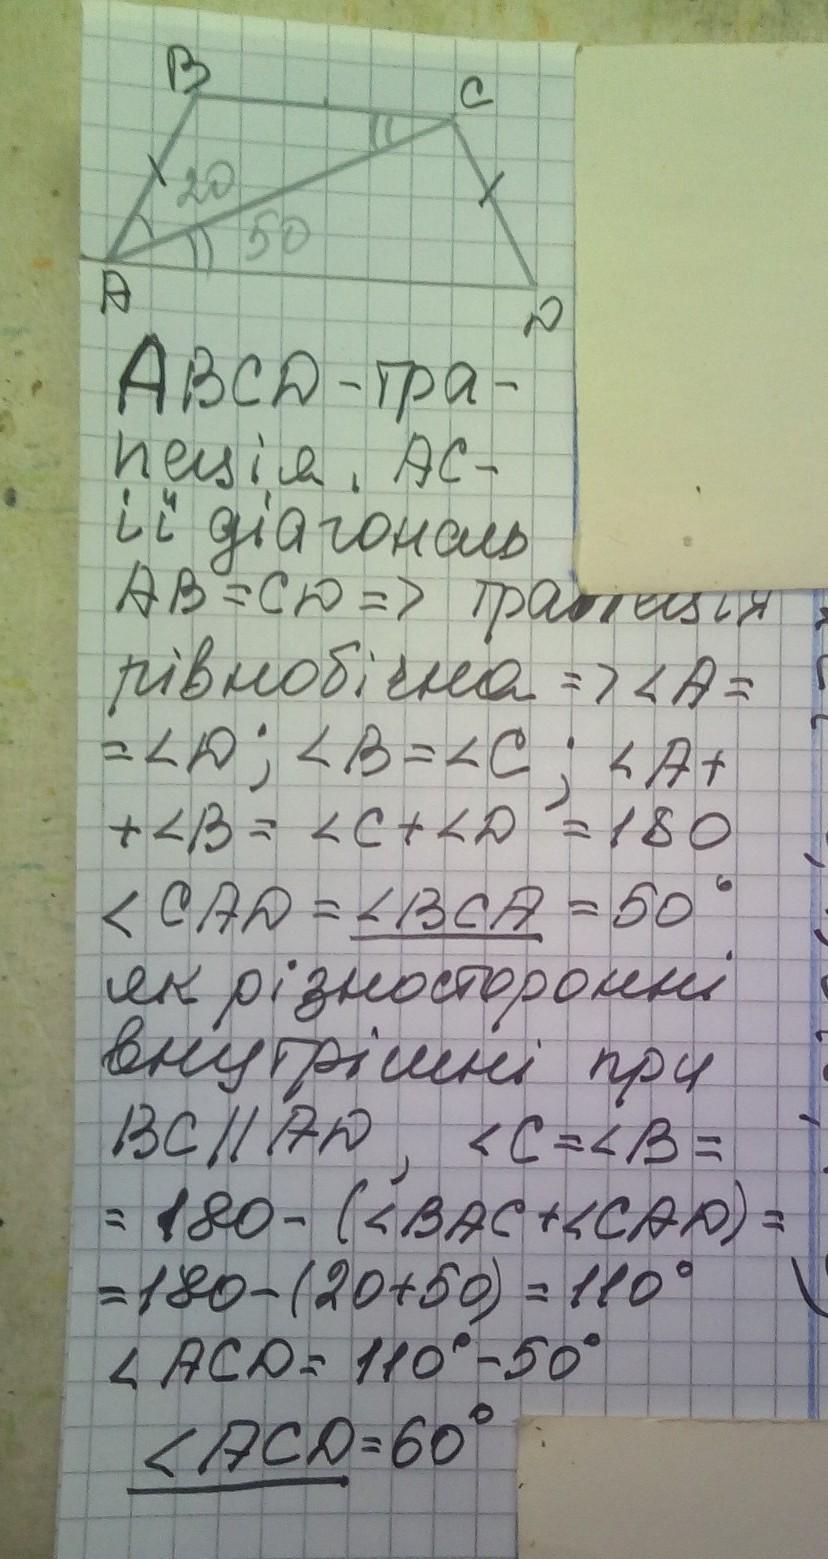 B
C
20
50
A
D
ABCD-тра-
пеція, AC-
її діагональ
AB=CD=> трапеція
рівнобічна => <A=
=<D; <B=<C; <A+
+<B= <C+<D =180
<CAD=<BCA=50°
як різносторонні
внутрішні при
BC||AD, <C=<B=
= 180-(<BAC+<CAD)=
=180-(20+50)=110°
<ACD= 110°-50°
<ACD=60°